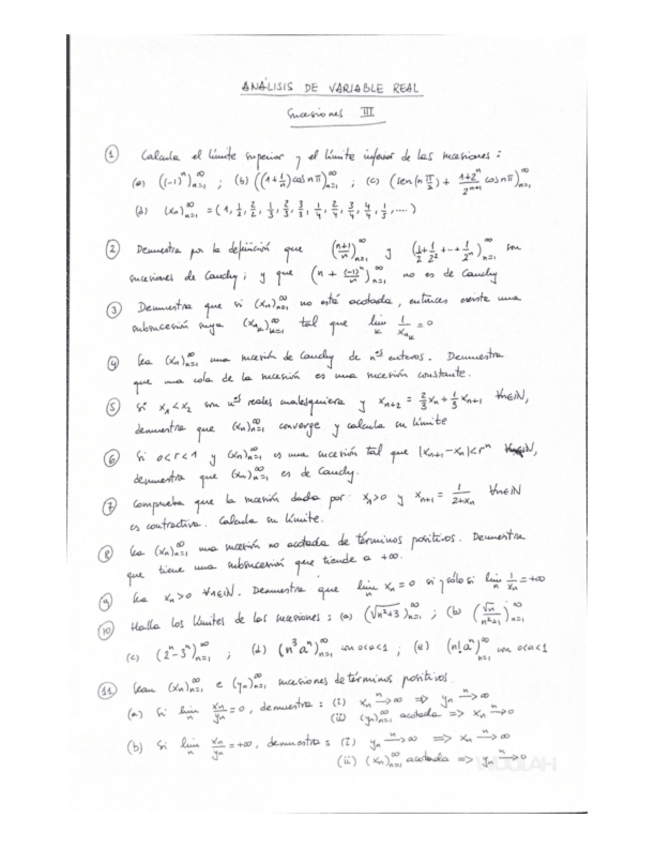 ANÁLISIS DE VARIABLE REAL
Sucesiones III
① Calcula el límite superior y el límite inferior de las sucesiones:
(a) ((-1)^n)_{n=1}^∞ ; (b) ((1+1/n) cos nπ)_{n=1}^∞ ; (c) (sen(n π/2) + (1+2^n)/2^{n+1} cos nπ)_{n=1}^∞
(d) (x_n)_{n=1}^∞ = (1, 1/2, 2/2, 1/3, 2/3, 3/3, 1/4, 2/4, 3/4, 4/4, 1/5, ....)
② Demuestra por la definición que ((n+1)/n)_{n=1}^∞ y (1/2 + 1/2^2 + ... + 1/2^n)_{n=1}^∞ son
sucesiones de Cauchy; y que (n + (-1)^n/n)_{n=1}^∞ no es de Cauchy
③ Demuestra que si (x_n)_{n=1}^∞ no está acotada, entonces existe una
subsucesión suya (x_{n_k})_{k=1}^∞ tal que lim_k 1/x_{n_k} = 0
④ Sea (x_n)_{n=1}^∞ una sucesión de Cauchy de nºs enteros. Demuestra
que una cola de la sucesión es una sucesión constante.
⑤ Si x_1 < x_2 son nºs reales cualesquiera y x_{n+2} = 2/3 x_n + 1/3 x_{n+1} ∀n∈ℕ,
demuestra que (x_n)_{n=1}^∞ converge y calcula su límite
⑥ Si 0<r<1 y (x_n)_{n=1}^∞ es una sucesión tal que |x_{n+1} - x_n| < r^n ∀n∈ℕ,
demuestra que (x_n)_{n=1}^∞ es de Cauchy.
⑦ Comprueba que la sucesión dada por x_1>0 y x_{n+1} = 1/(2+x_n) ∀n∈ℕ
es contractiva. Calcula su límite.
⑧ Sea (x_n)_{n=1}^∞ una sucesión no acotada de términos positivos. Demuestra
que tiene una subsucesión que tiende a +∞.
⑨ Sea x_n>0 ∀n∈ℕ. Demuestra que lim_n x_n = 0 si y sólo si lim_n 1/x_n = +∞
⑩ Halla los límites de las sucesiones: (a) (√(n²+3))_{n=1}^∞ ; (b) (√n/(n²+1))_{n=1}^∞
(c) (2^n - 3^n)_{n=1}^∞ ; (d) (n³ a^n)_{n=1}^∞ con 0<a<1 ; (e) (n! a^n)_{n=1}^∞ con 0<a<1
⑪ Sean (x_n)_{n=1}^∞ e (y_n)_{n=1}^∞ sucesiones de términos positivos.
(a) Si lim_n x_n/y_n = 0, demuestra: (i) x_n →^n ∞ ⇒ y_n →^n ∞
(ii) (y_n)_{n=1}^∞ acotada ⇒ x_n →^n 0
(b) Si lim_n x_n/y_n = +∞, demuestra: (i) y_n →^n ∞ ⇒ x_n →^n ∞
(ii) (x_n)_{n=1}^∞ acotada ⇒ y_n →^n 0
WUOLAH